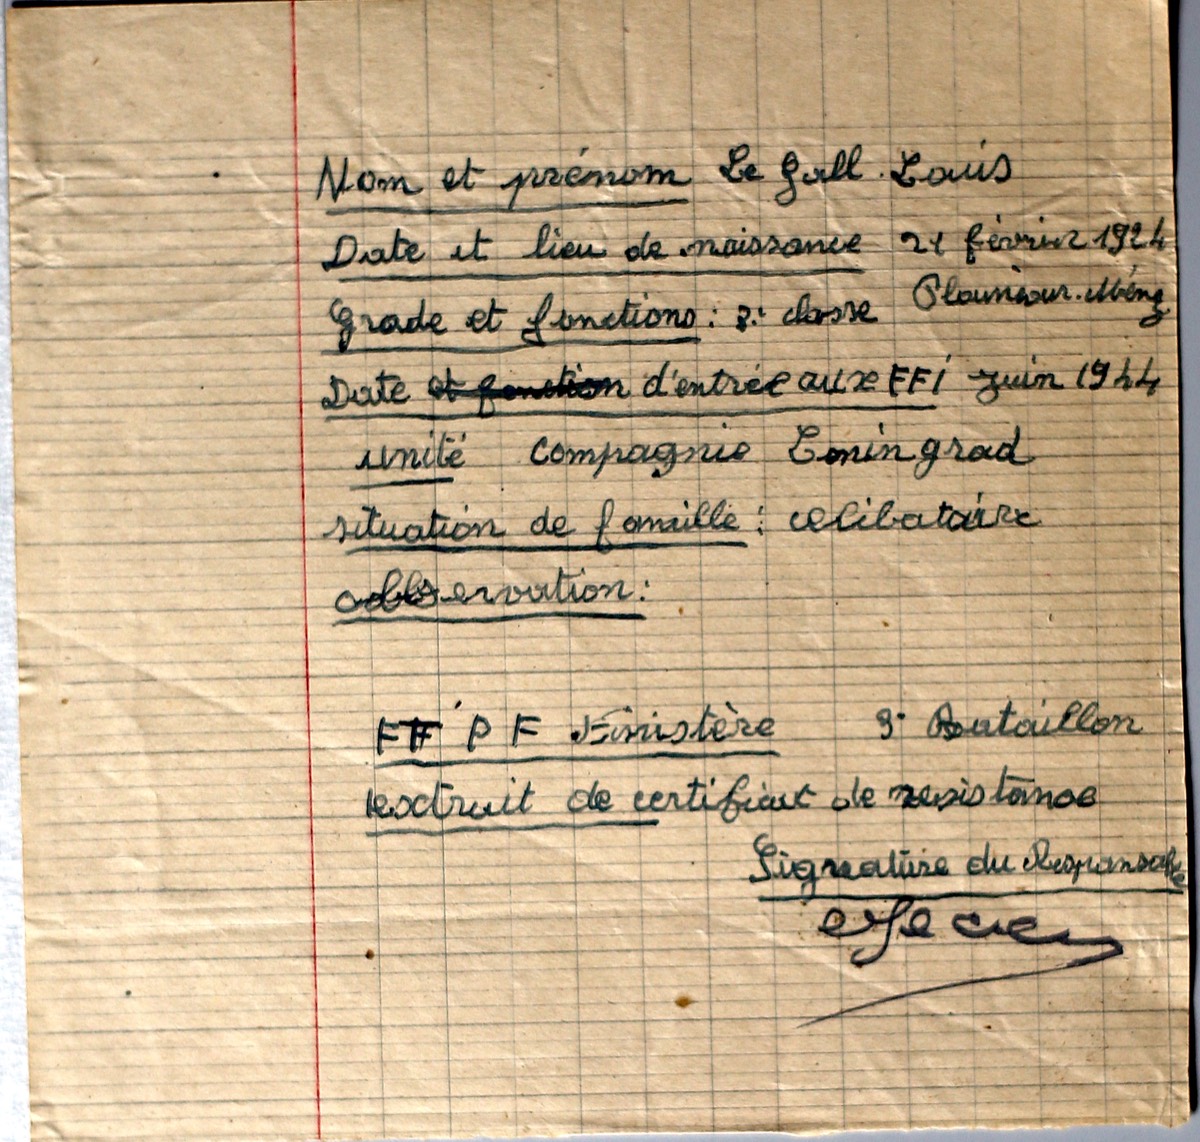 Nom et prénom Le Gall Louis
Date et lieu de naissance 21 février 1924
Plounéour-Ménez
Grade et fonctions : 2e classe
Date et fonction d'entrée aux FFI Juin 1944
unité compagnie Leningrad
situation de famille : celibataire
observation :
FTPF Finistère 3e Bataillon
extrait de certificat de resistance
Signature du Responsable